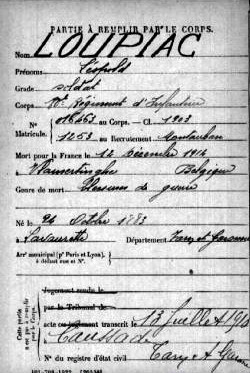 PARTIE À REMPLIR PAR LE CORPS.
Nom LOUPIAC
Prénoms Léopold
Grade soldat
Corps Régiment d'Infanterie
N° 016463 au Corps. — Cl. 1903
Matricule. 1253 au Recrutement Montauban
Mort pour la France le 14 Décembre 1914
à Vlamertinghe Belgique
Genre de mort Blessures de guerre
Né le 26 Octbre 1883
à Lavaurette Département Tarn et Garonne
Arrt municipal (pr Paris et Lyon),
à défaut rue et N°.
Cette partie
n'est pas à remplir
par le Corps.
Jugement rendu le
par le Tribunal de
acte ou jugement transcrit le 13 Juillet 191
à Caussade
N° du registre d'état civil Tarn et Garonne